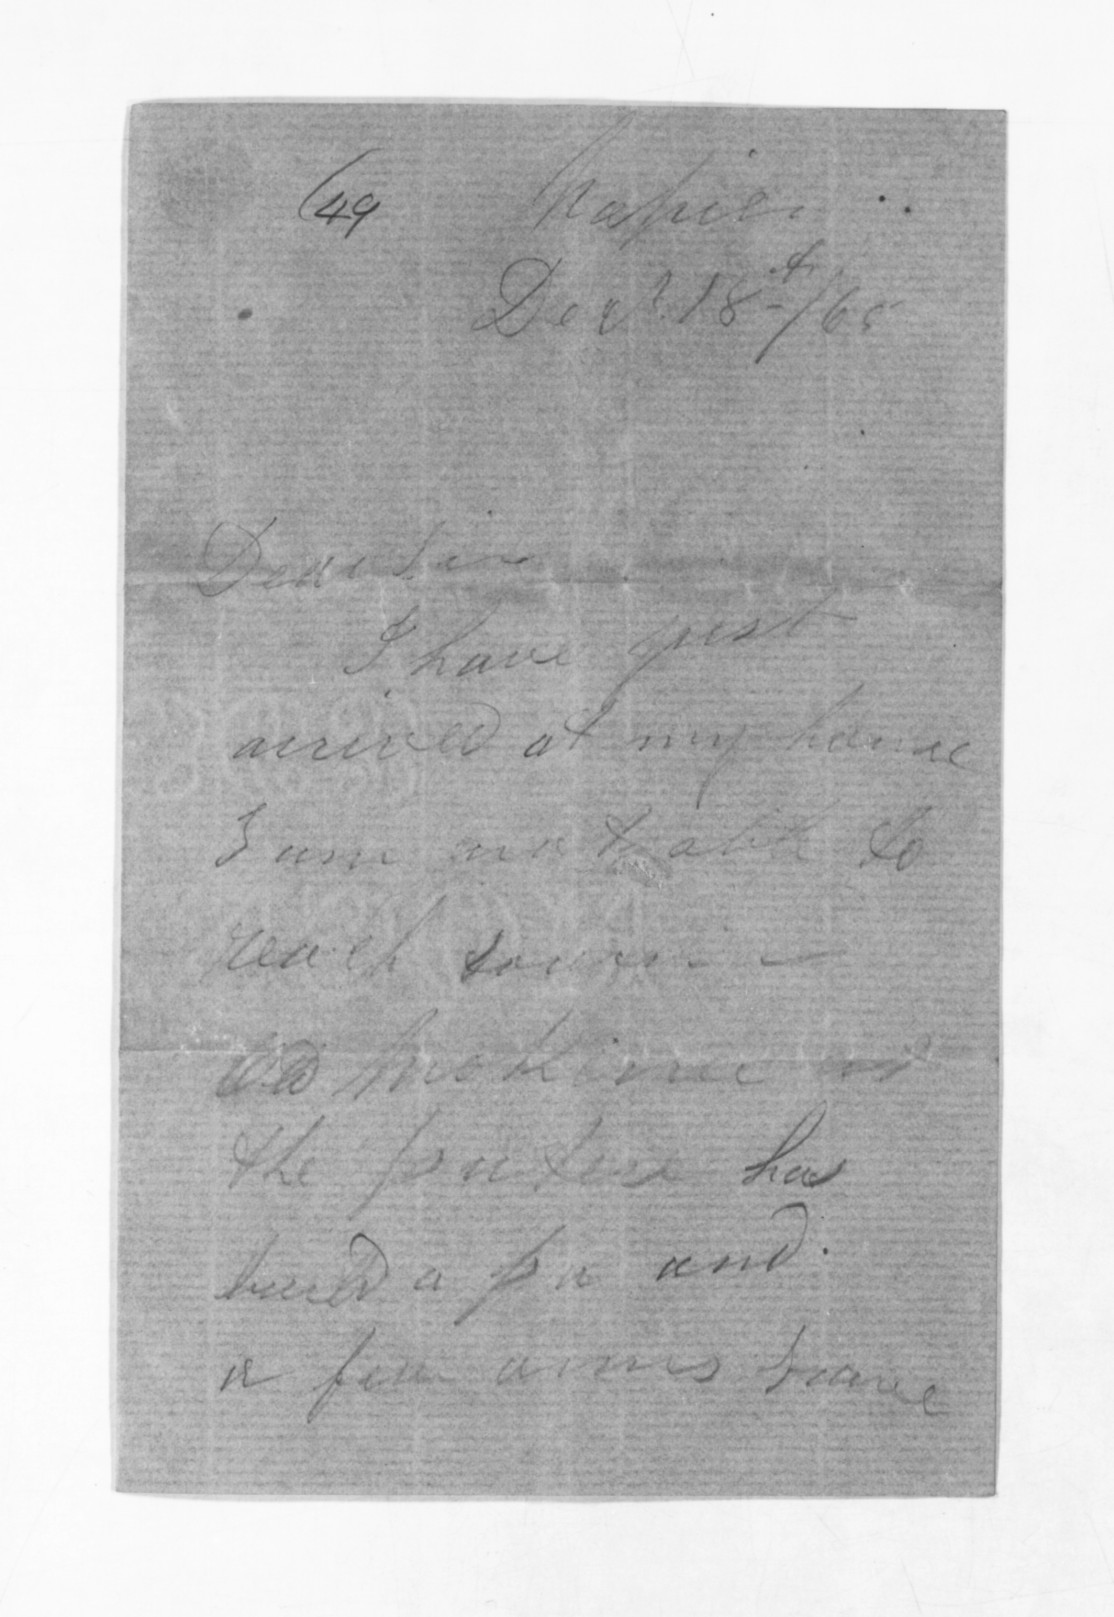 (49 Napier
Decr. 18th/65
Dear Sir
I have just
arrived at my house
I am not able to
reach town
at
the has
build a pa and
a few arms have